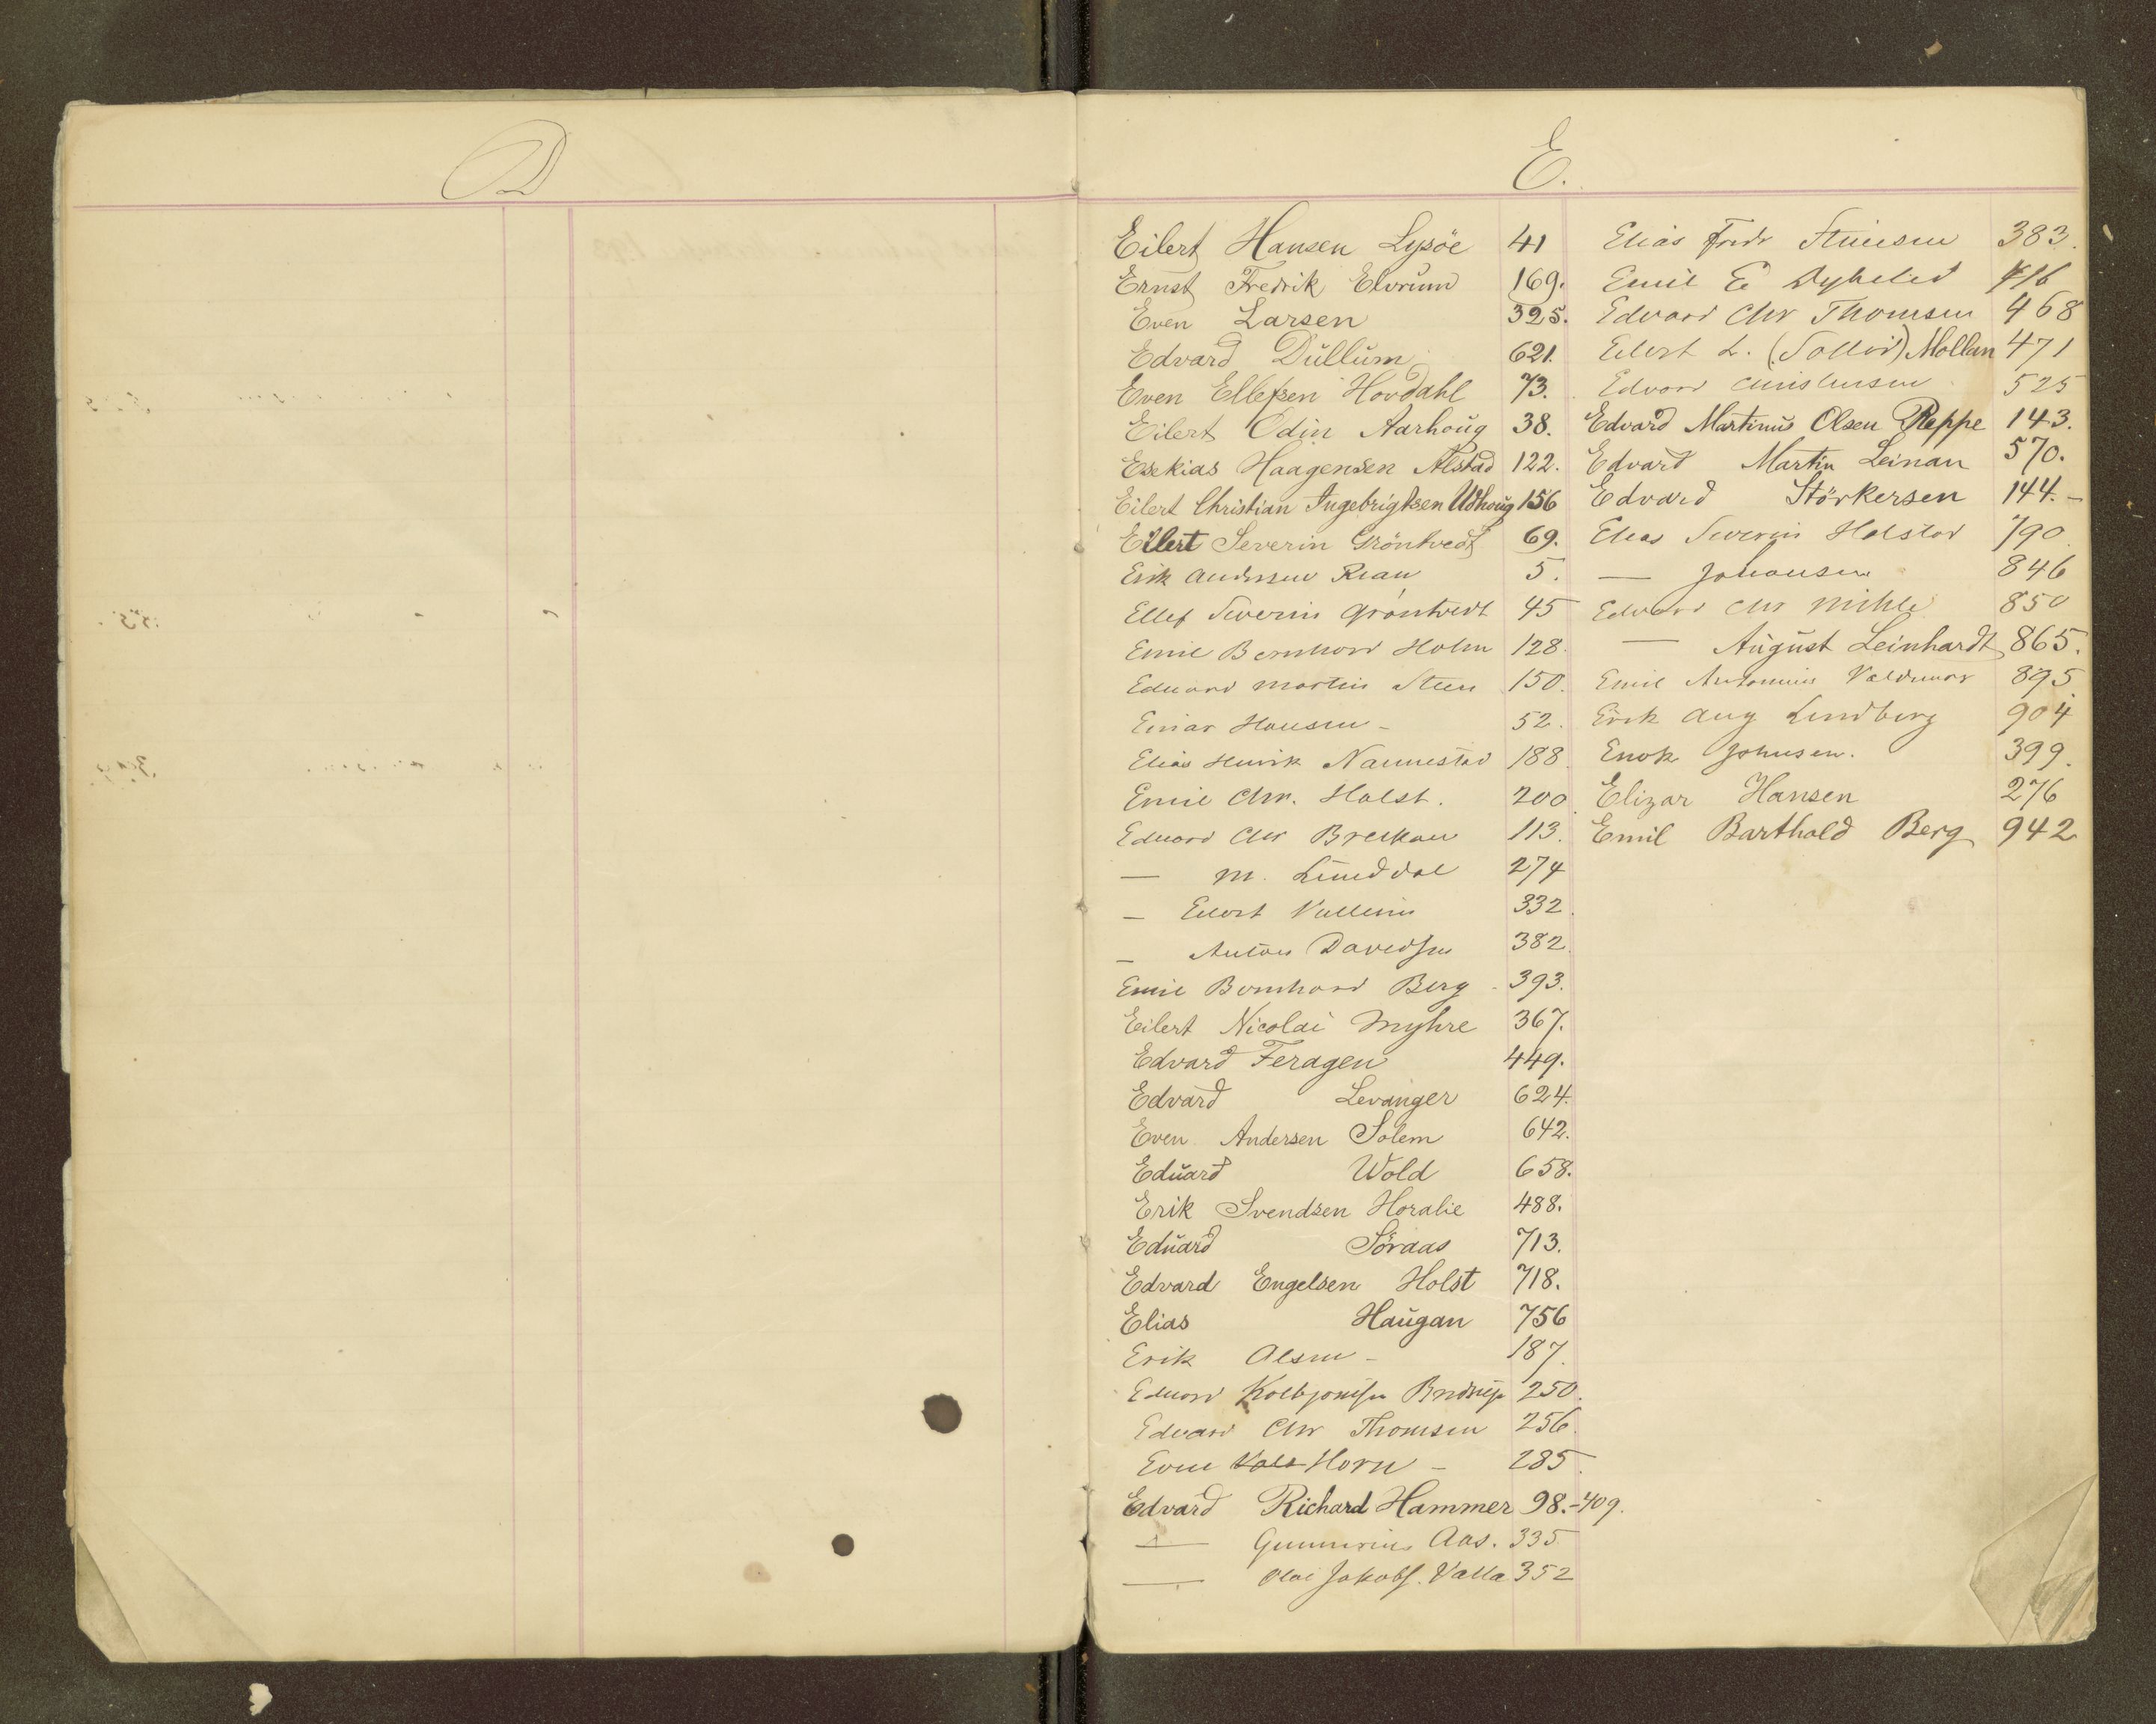 D
E.
Eilert Hansen Lysöe 41
Ernst Fredrik Elvrum 169.
Even Larsen 325.
Edvard Dullum 621.
Even Ellefsen Hovdahl 73.
Eilert Odin Aarhoug 38.
Esekias Haagensen Alstad 122.
Eilert Christian Ingebrigtsen Udhoug 156
Eilert Severin Gröntvedt 69.
Erik Andersen Rian 5.
Ellef Severin Gröntvedt 45
Emil Bernhard Holm 128.
Edvard Martin Steen 150.
Einar Hansen - 52.
Elias Henrik Nannestad 188
Emil Chr. Holst. 200
Edvard Chr Brekkan 113.
— M. Lunddal 274
— Eilert Vullum 332
— Anton Davidsen 382.
Emil Bernhard Berg 393.
Eilert Nicolai Myhre 367.
Edvard Feragen 449.
Edvard Levanger 624.
Even Andersen Solem 642.
Eduard Wold 658.
Erik Svendsen Horalie 488.
Eduard Söraas 713.
Edvard Engelsen Holst 718.
Elias Haugan 756
Erik Olsen - 187.
Edvard Kolbjønsen 250.
Edvard Chr Thomsen 256.
Even Horn - 285.
Edvard Richard Hammer 98.-409.
— Gunnerius Aas. 335
— Olai Jakobs. Valla 352
Elias Fredr 383.
Emil E 416
Edvard Chr Thomsen 468
Eilert L. Mollan 471
Edvard Christensen 525
Edvard Martinus Olsen Reppe 143.
Edvard Martin Leinan 570.
Edvard Störkersen 144.-
Elias Severin Halstad 790.
— Johansen 846
Edvard Chr Mihle 850
— August Leinhardt 865.
Emil Antonius Valdemar 895
Erik Aug Lindberg 904
Enok Johnsen. 399.
Elizar Hansen 276
Emil Barthold Berg 942